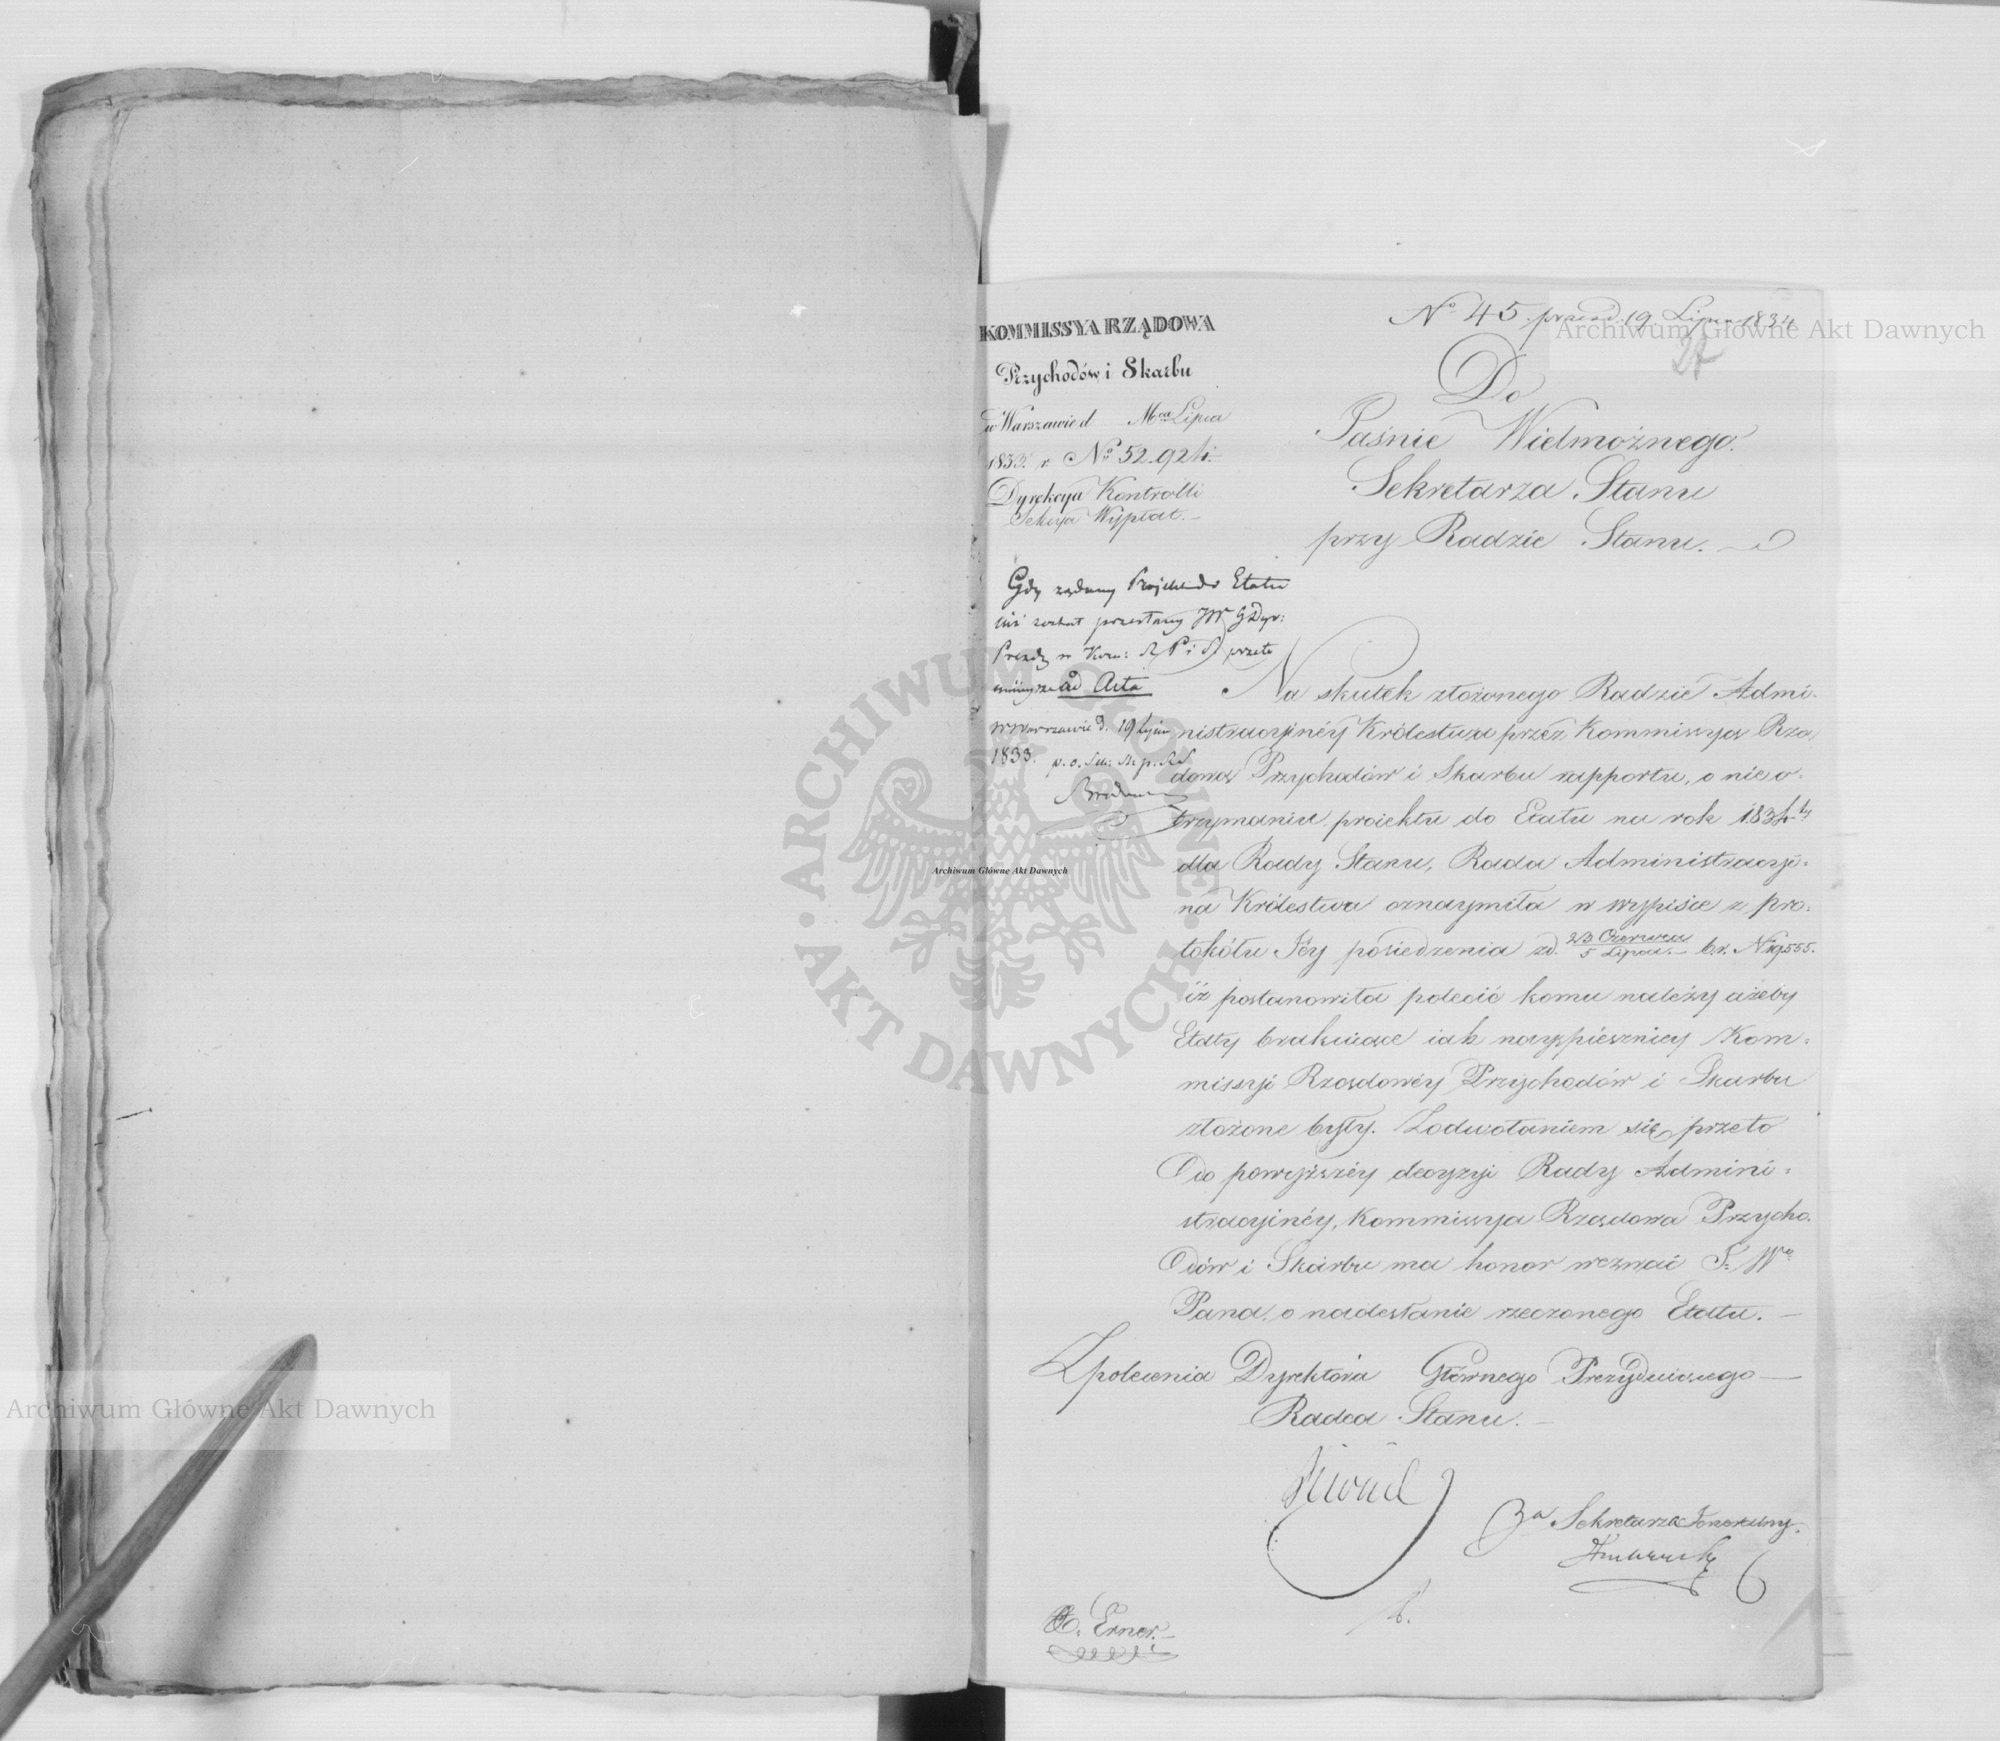 No 45. praesd. 19 Lipca 1834
KOMMISSYA RZĄDOWA
Przychodów i Skarbu
w Warszawie d Mca Lipca
1833. r. No 52.924.
Dyrekcya Kontrolli
Sekcya Wypłat.
Do
Jaśnie Wielmożnego
Sekretarza Stanu
przy Radzie Stanu.
Gdy żądany Projekt do Etatu
iuż został przesłany JW GDyr:
Prezdz w Kom: R P i S przeto
ninieysze ad Acta
w Warszawie d. 19 Lipca
1833. p. o. Sek: St. p. RS
Na skutek złożonego Radzie Admi-
nistracyinéy Królestwa przez Kommissyą Rzą-
dową Przychodów i Skarbu rapportu, o nie o-
trzymaniu proiektu do Etatu na rok 1834ty
dla Rady Stanu, Rada Administracyi-
na Królestwa oznaymiła w wypisie z pro-
tokółu Jéy posiedzenia zd. 23 Czerwca / 5 Lipca b.r. N 19555.
iż postanowiła polecić komu należy ażeby
Etaty brakuiące iak nayspieszniey Kom-
missyi Rządowéy Przychodów i Skarbu
złożone były. Z odwołaniem się przeto
do powyższéy decyzyi Rady Admini-
stracyinéy, Kommissya Rządowa Przycho-
dów i Skarbu ma honor wezwać J. Wo
Pana, o nadesłanie rzeczonego Etatu.
Z polecenia Dyrektora Głównego Prezyduiącego
Radca Stanu.
Za Sekretarza Jeneralny.
Erner.
Archiwum Główne Akt Dawnych
Archiwum Główne Akt Dawnych
Archiwum Główne Akt Dawnych
ARCHIWUM GŁÓWNE AKT DAWNYCH